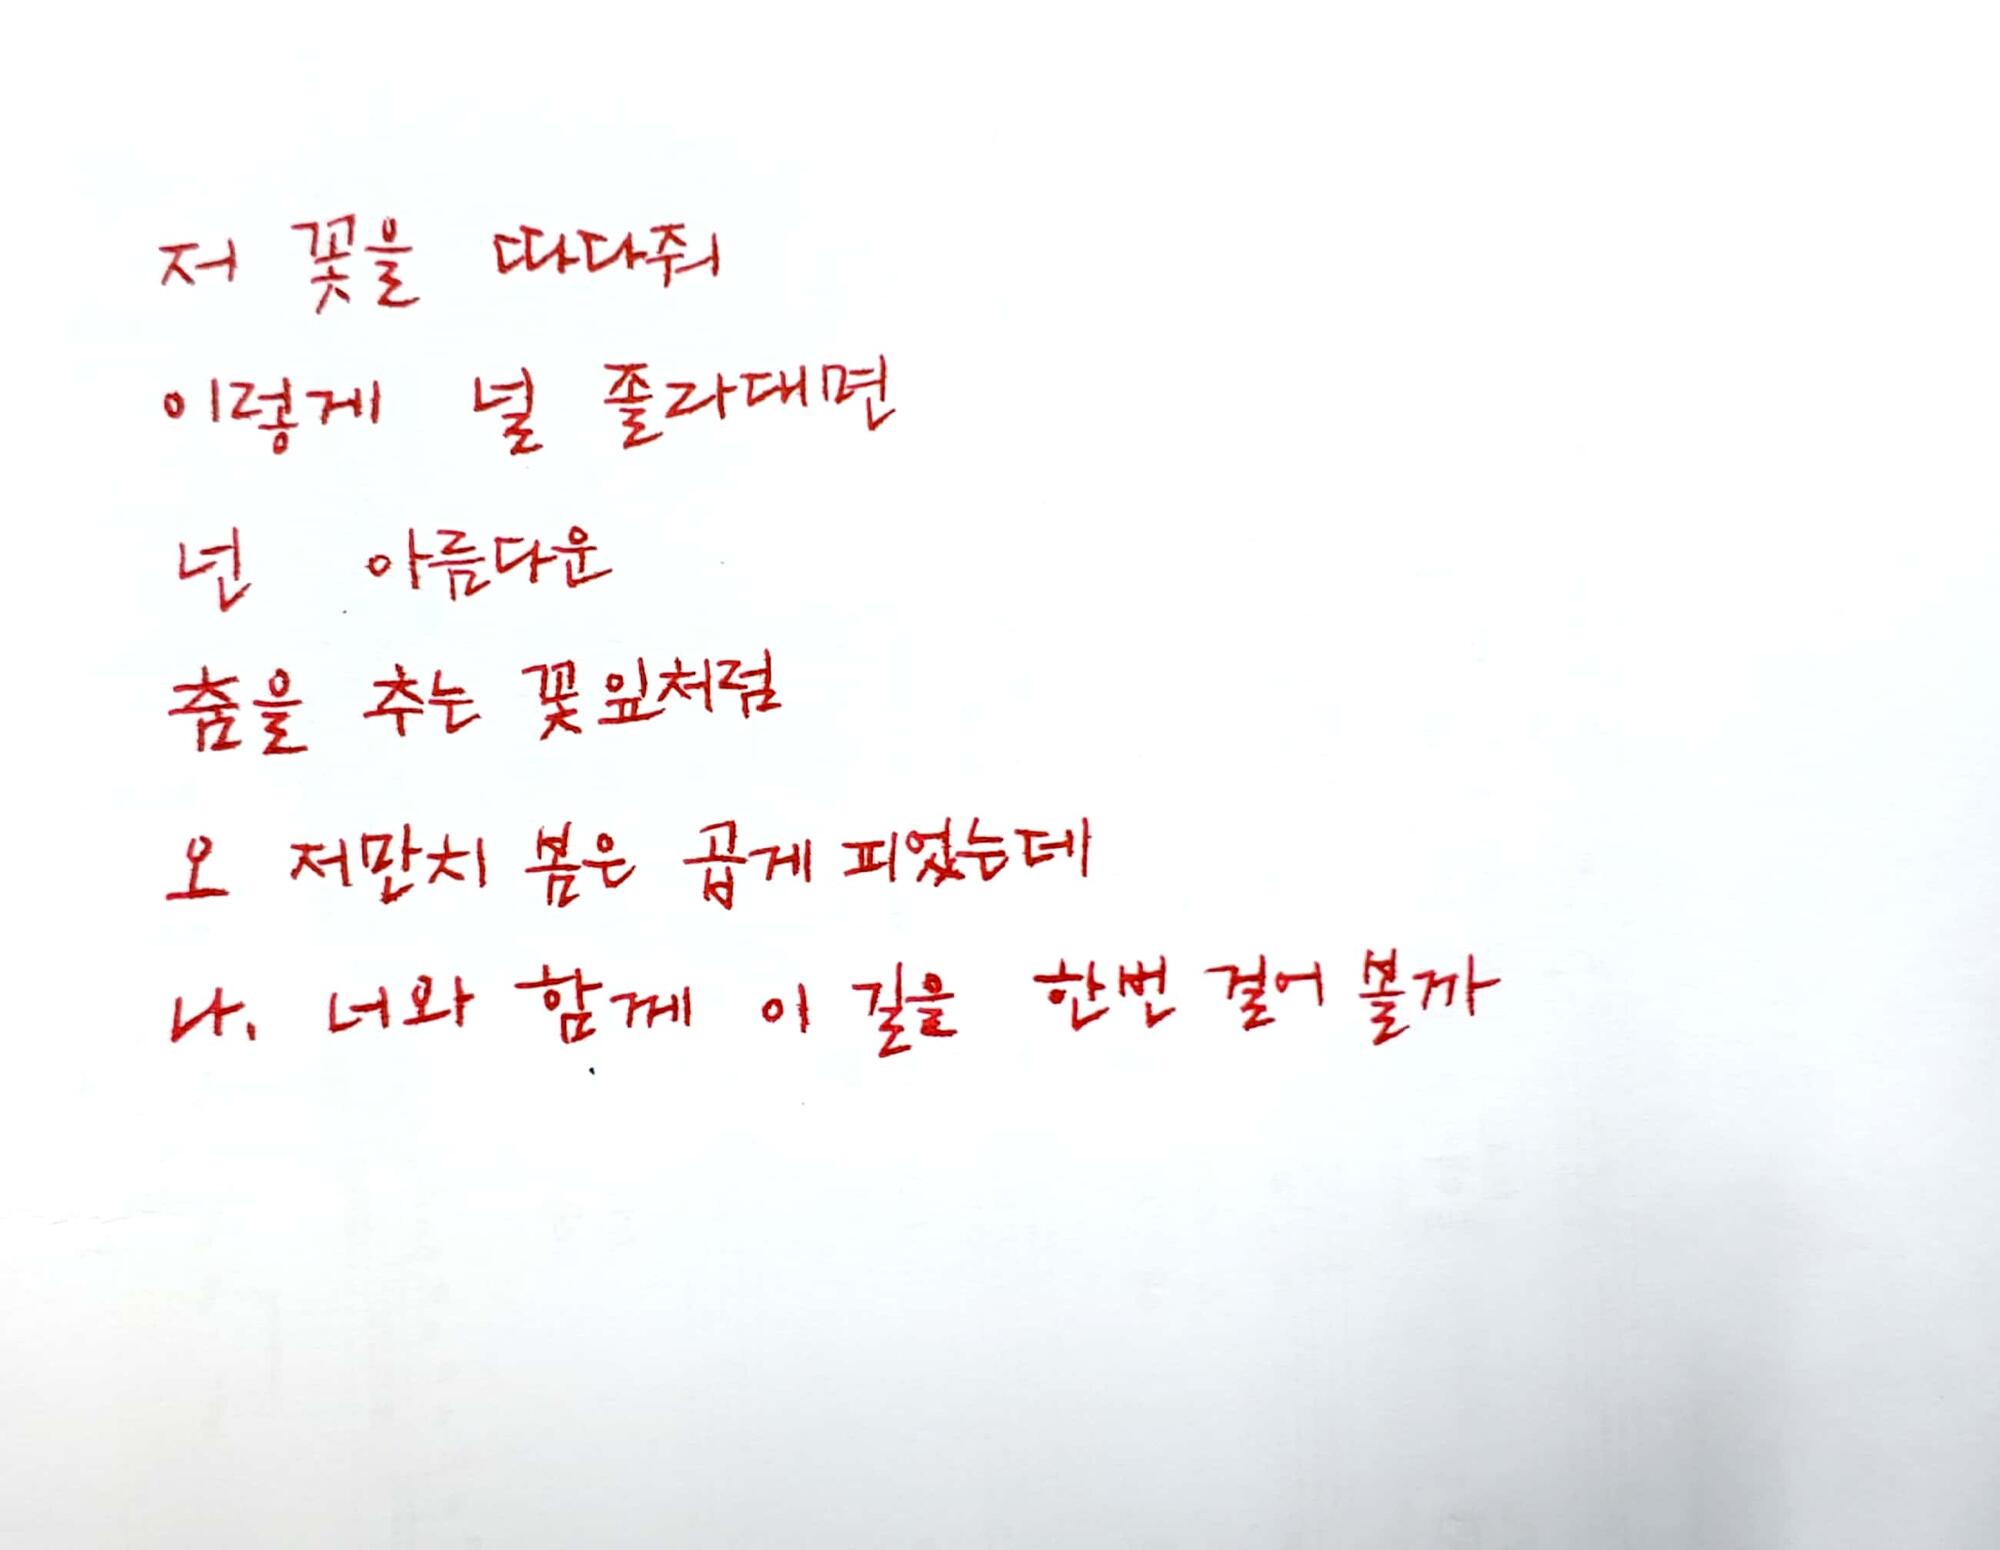 저 꽃을 따다줘
이렇게 널 졸라대면
넌 아름다운
춤을 추는 꽃잎처럼
오 저만치 봄은 곱게 피었는데
나. 너와 함께 이 길을 한번 걸어 볼까